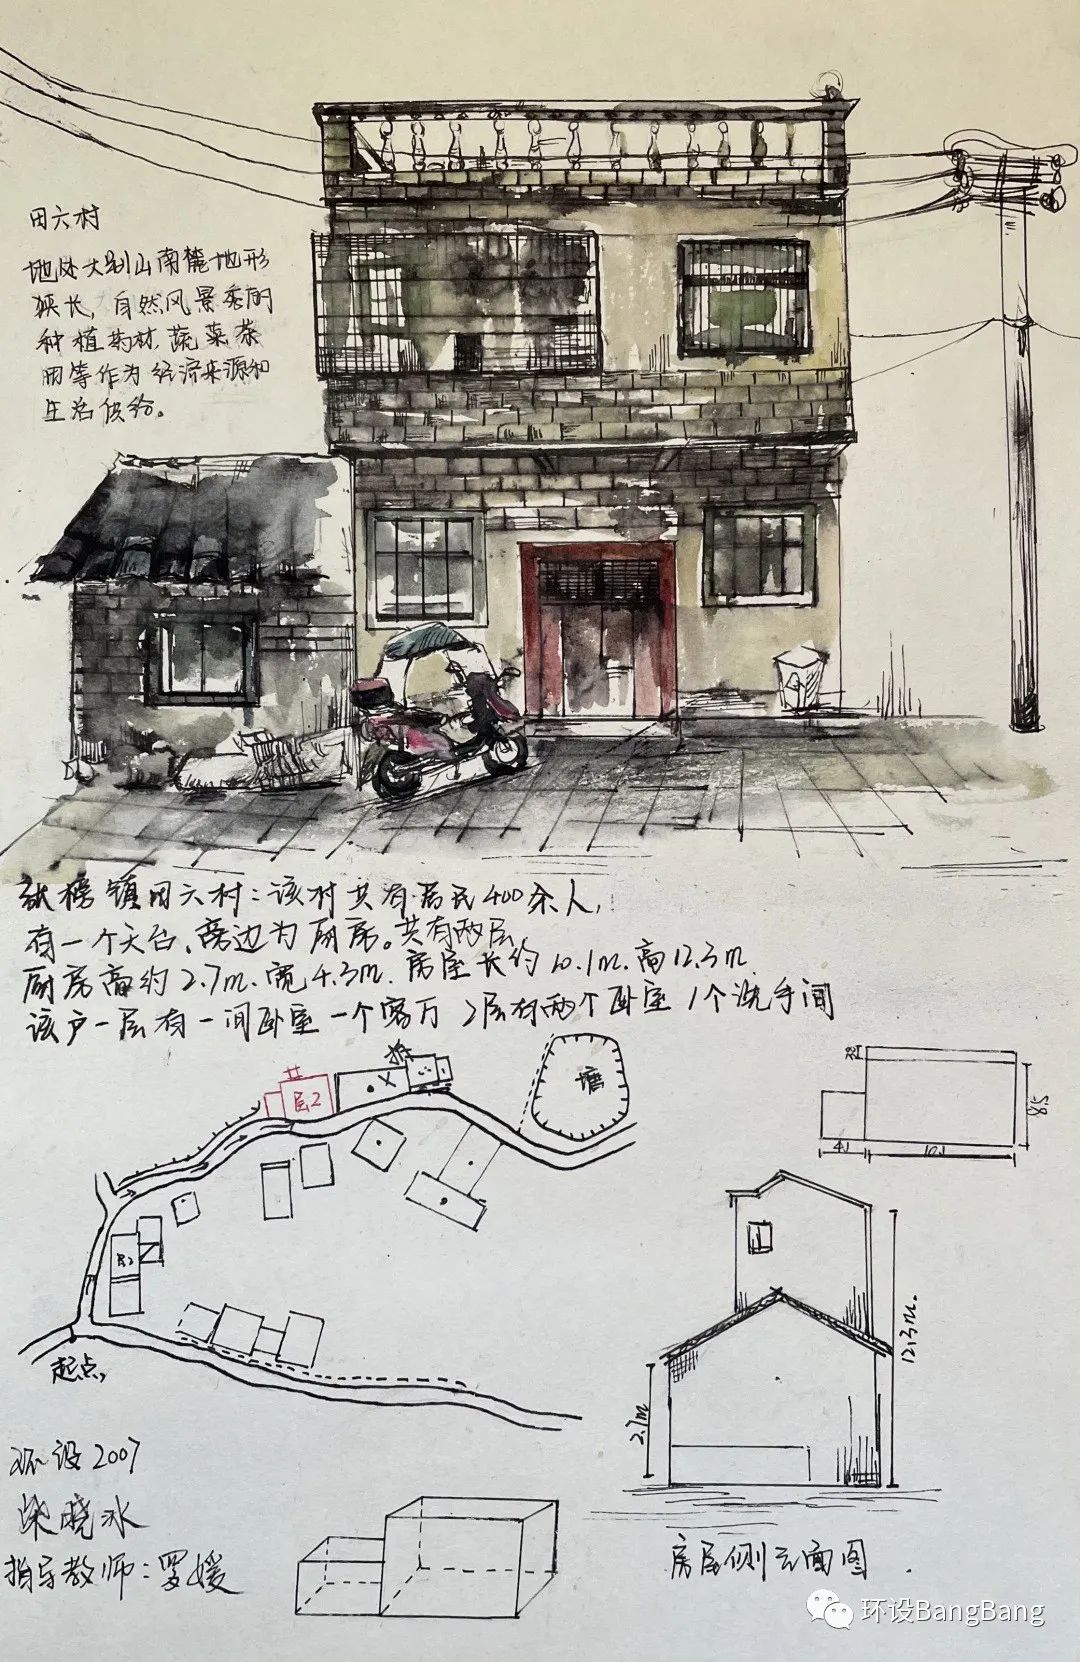 田六村
地处大别山南麓地形
狭长，自然风景秀丽
种植药材.蔬菜.茶
田等作为经济来源和
生活供给。
张榜镇田六村：该村共有居民400余人，
有一个天台，旁边为厨房。共有两层，
厨房高约2.7m.宽4.3m.房屋长约10.1m.高12.3m
该户一层有一间卧室一个客厅 2层有两个卧室 1个洗手间
拆
层2
塘
8.5
4.1
10.1
层2
起点
12.3m.
2.7m
环设2007
晓冰
指导教师：罗媛
房屋侧立面图
环设BangBang